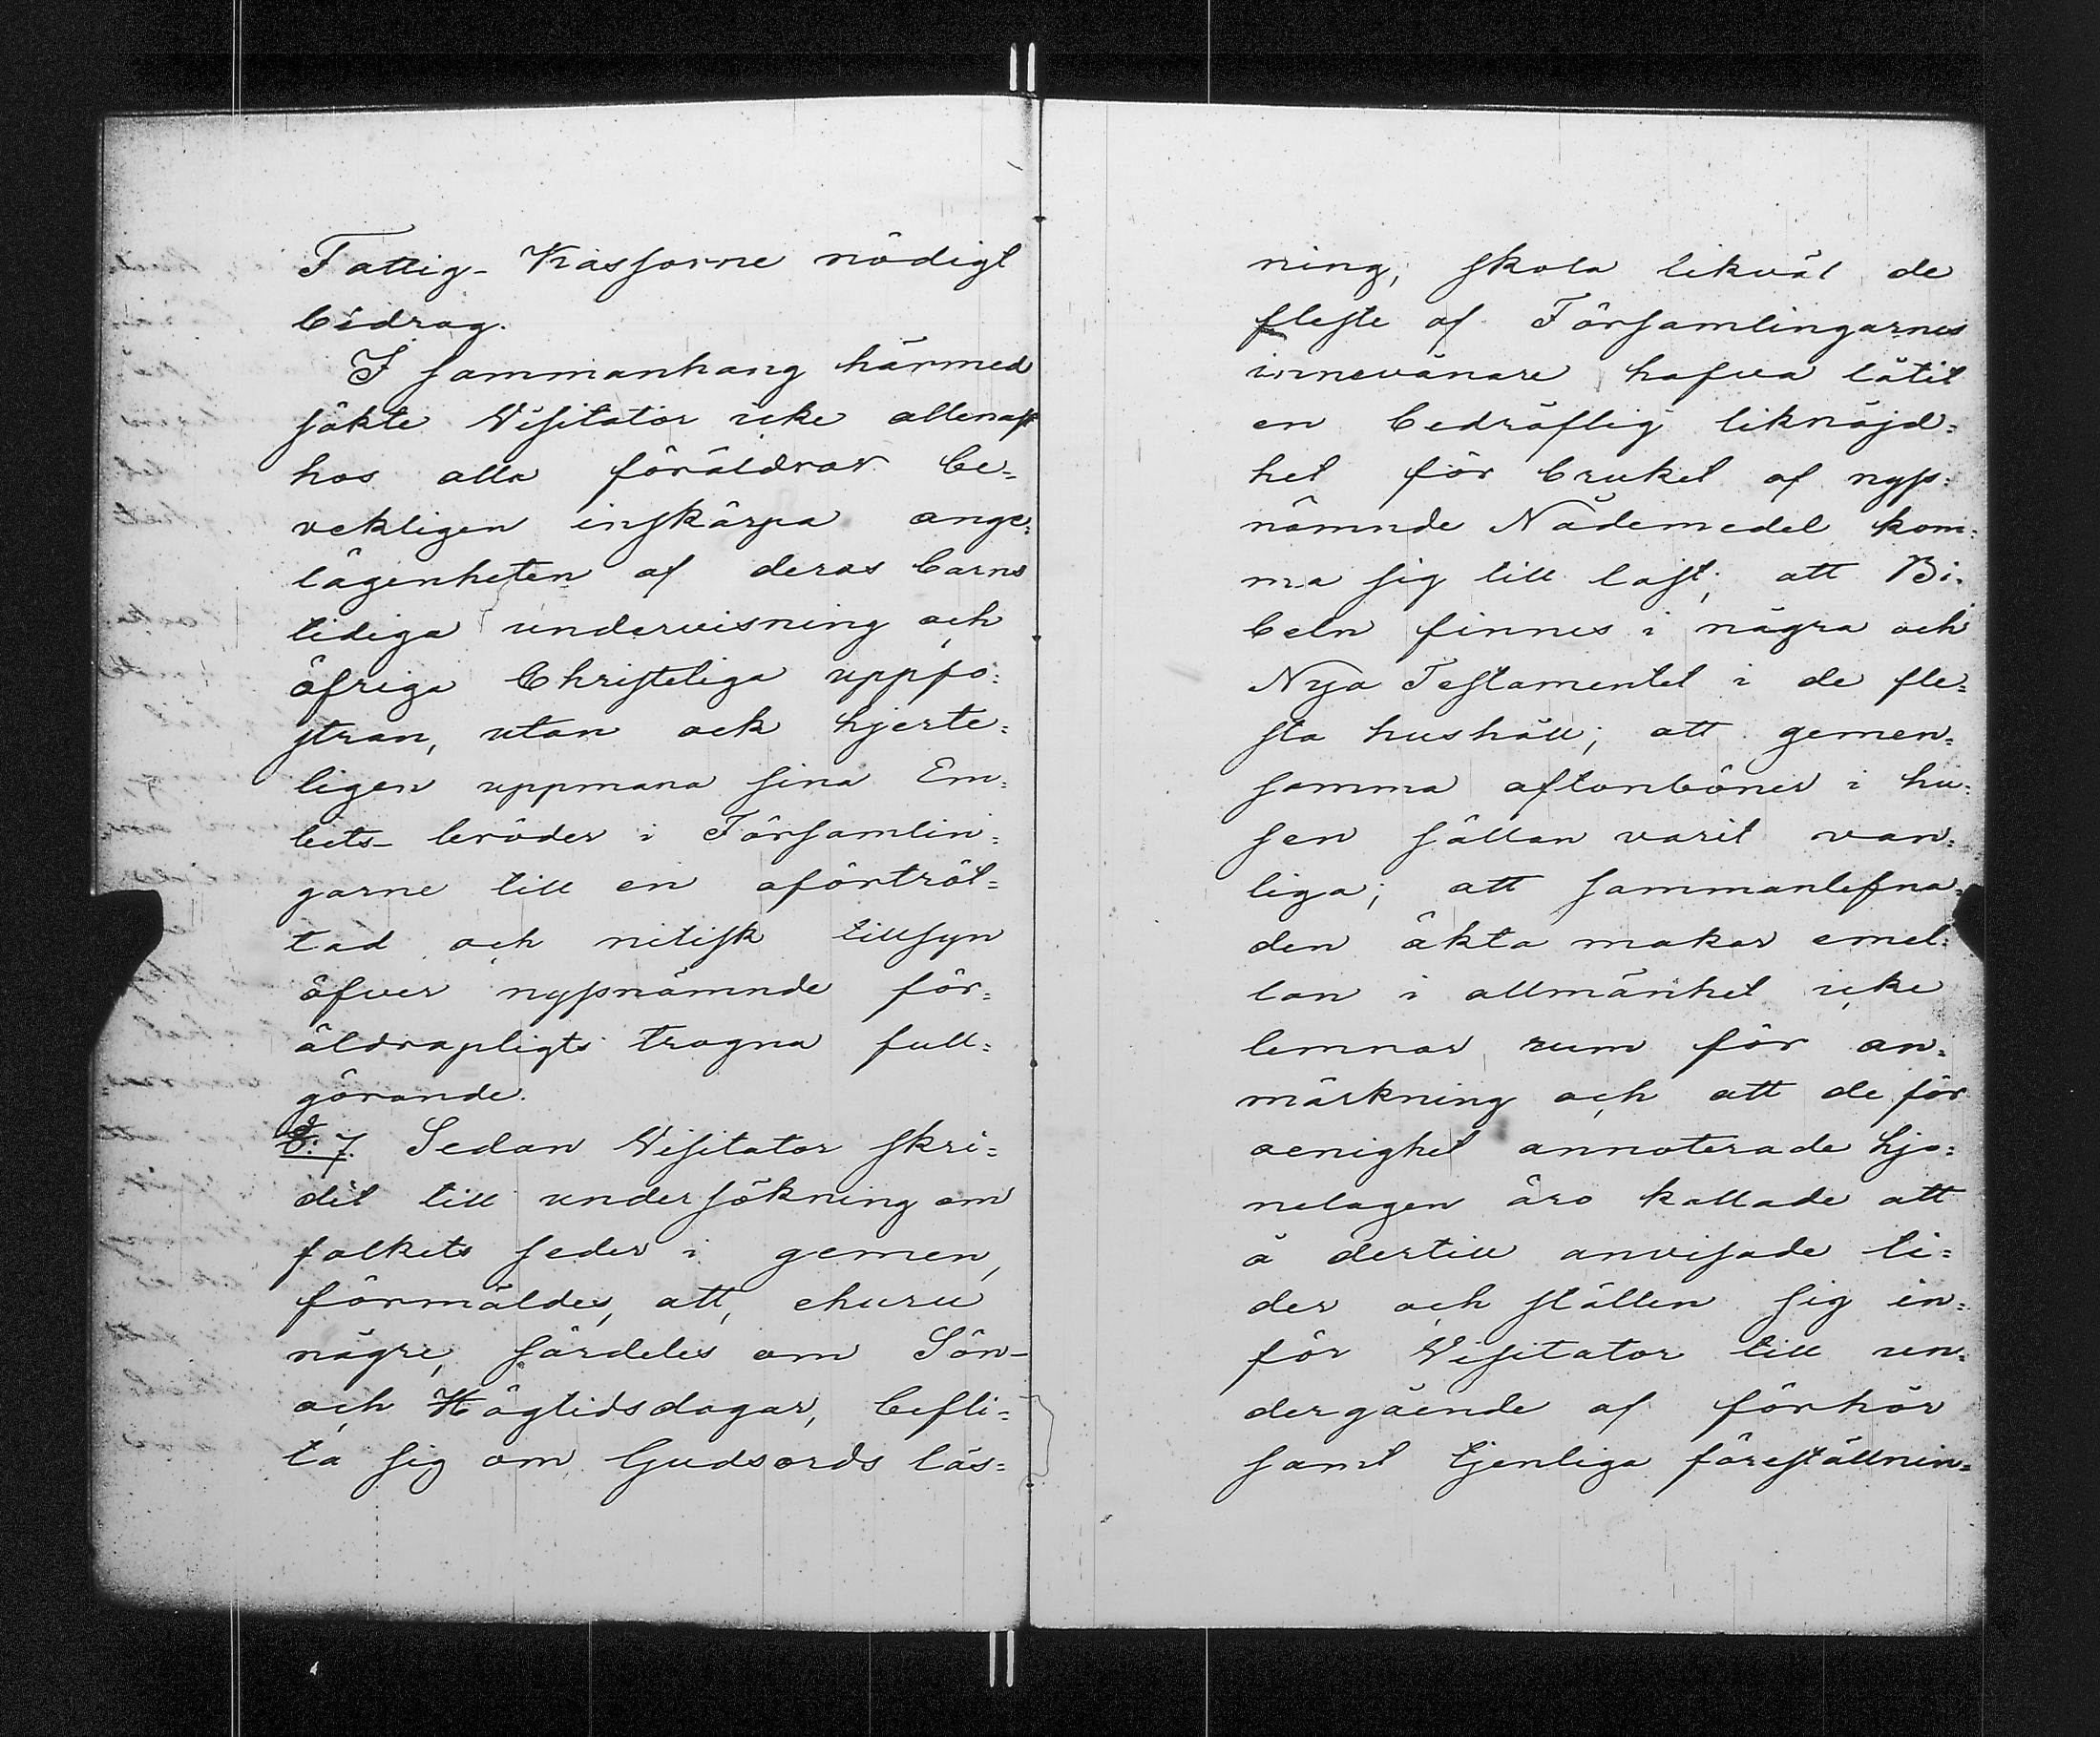 Fattig- Kassorne nödigt
bidrag.
I sammanhang härmed
sökte Visitator icke allenast
hos alla föräldrar be=
vekligen inskärpa ange=
lägenheten af deras barns
tidiga undervisning och
öfriga Christeliga uppfo=
stran, utan ock hjerte=
ligen uppmana sina Em=
bets- bröder i Församlin=
garne till en oförtröt=
tad och nitisk tillsyn
öfver nyssnämnde för=
äldrapligts trogna full=
görande.
§. 7. Sedan Visitator skri=
dit till undersökning om
folkets seder i gemen,
förmäldes, att, ehuru
någre, särdeles om Sön-
och Högtidsdagar, befli=
ta sig om Gudsords läs=
ning, skola likväl de
fleste af Församlingarnes
innevånare hafva låtit
en bedröflig liknöjd=
het för bruket af nyss=
nämnde Nådemedel kom=
ma sig till last; att Bi=
beln finnes i några och
Nya Testamentet i de fle=
sta hushåll; att gemen=
samma aftonböner i hu=
sen sällan varit van=
liga; att sammanlefna=
den äkta makar emel=
lan i allmänhet icke
lemnar rum för an=
märkning och att de för
oenighet annoterade hjo=
nelagen äro kallade att
å dertill anvisade ti=
der och ställen sig in=
för Visitator till un=
dergående af förhör
samt tjenliga föreställnin=